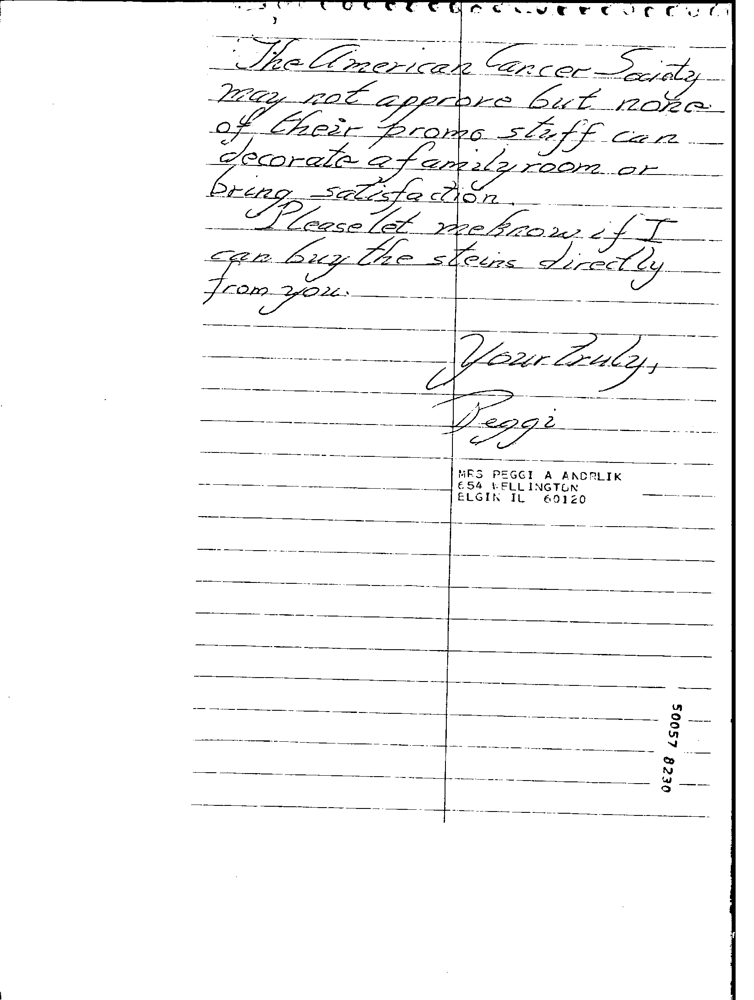 The American Cancer Society
may not approve but none
of their promo stuff can
decorate a family room or
bring satisfaction.
Please let me know if I
can buy the steins directly
from you.
Your truly,
Peggi
MRS PEGGI A ANDRLIK
654 WELLINGTON
ELGIN IL 60120
50057 8230